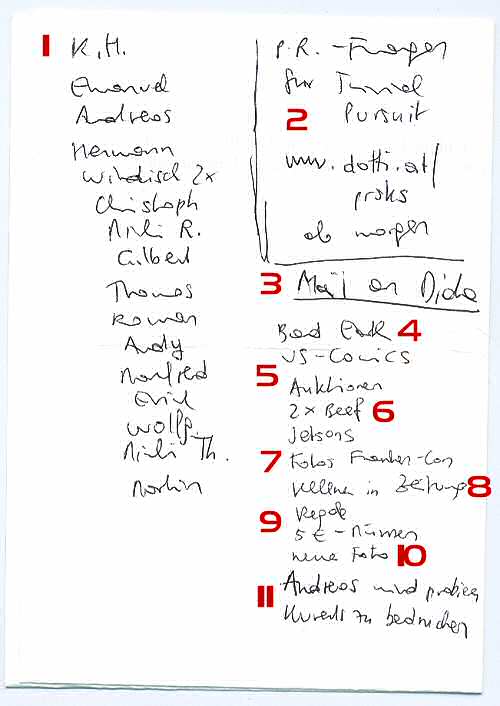 1 K.H.
Emanuel
Andreas
Hermann
Windisch 2x
Christoph
Michi R.
Gilbert
Thomas
Roman
Andy
Manfred
Erich
Wolfg.
Michi Th.
Martin
P.R. - Fragen
für Tunnel
2 Pursuit
www.dotti.at/
ab morgen
3 Mail an Dida
Bad 4
US-Comics
5 Auktionen
2x Beef 6
Jetsons
7 Fotos Franken-Con
in Zeitung 8
9 Regale
5 € - Münzen
neue Foto 10
11 Andreas wird
Kuverts zu bedrucken